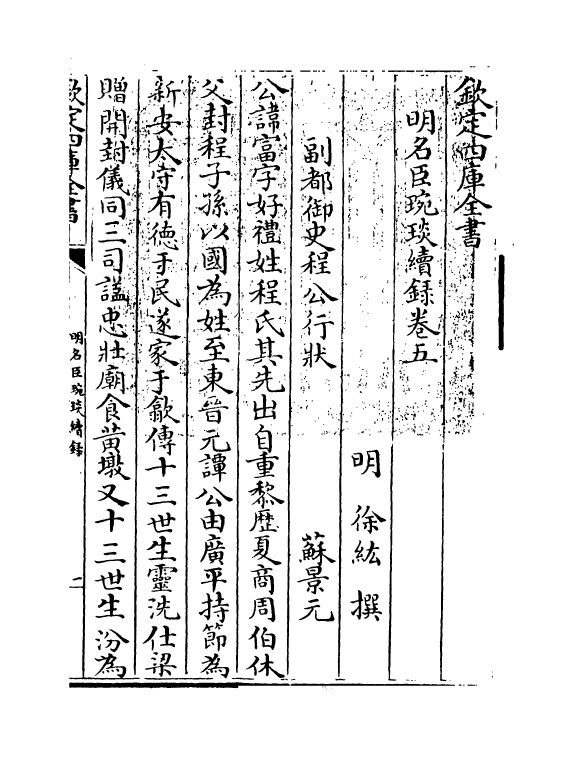 欽定四庫全書
明名臣琬琰續錄卷五
明 徐紘 撰
副都御史程公行狀 蘇景元
公諱富字好禮姓程氏其先出自重黎歷夏商周伯休
父封程子孫以國為姓至東晉元譚公由廣平持節為
新安太守有德于民遂家于歙傳十三世生靈洗仕梁
贈開封儀同三司諡忠壯廟食黄墩又十三世生汾為
欽定四庫全書
明名臣琬琰續錄